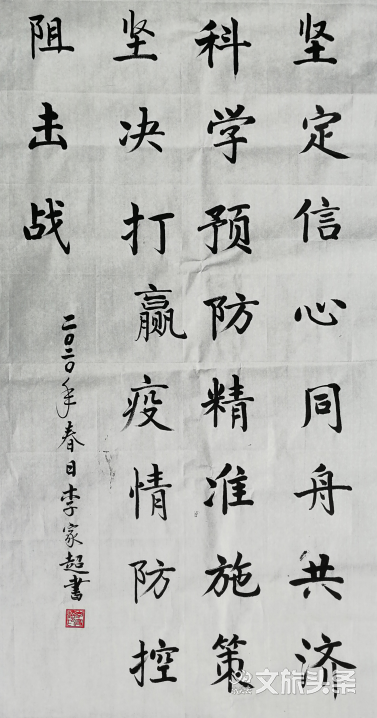 坚定信心同舟共济
科学预防精准施策
坚决打赢疫情防控
阻击战
二〇二〇年春日李家超书
文旅头条